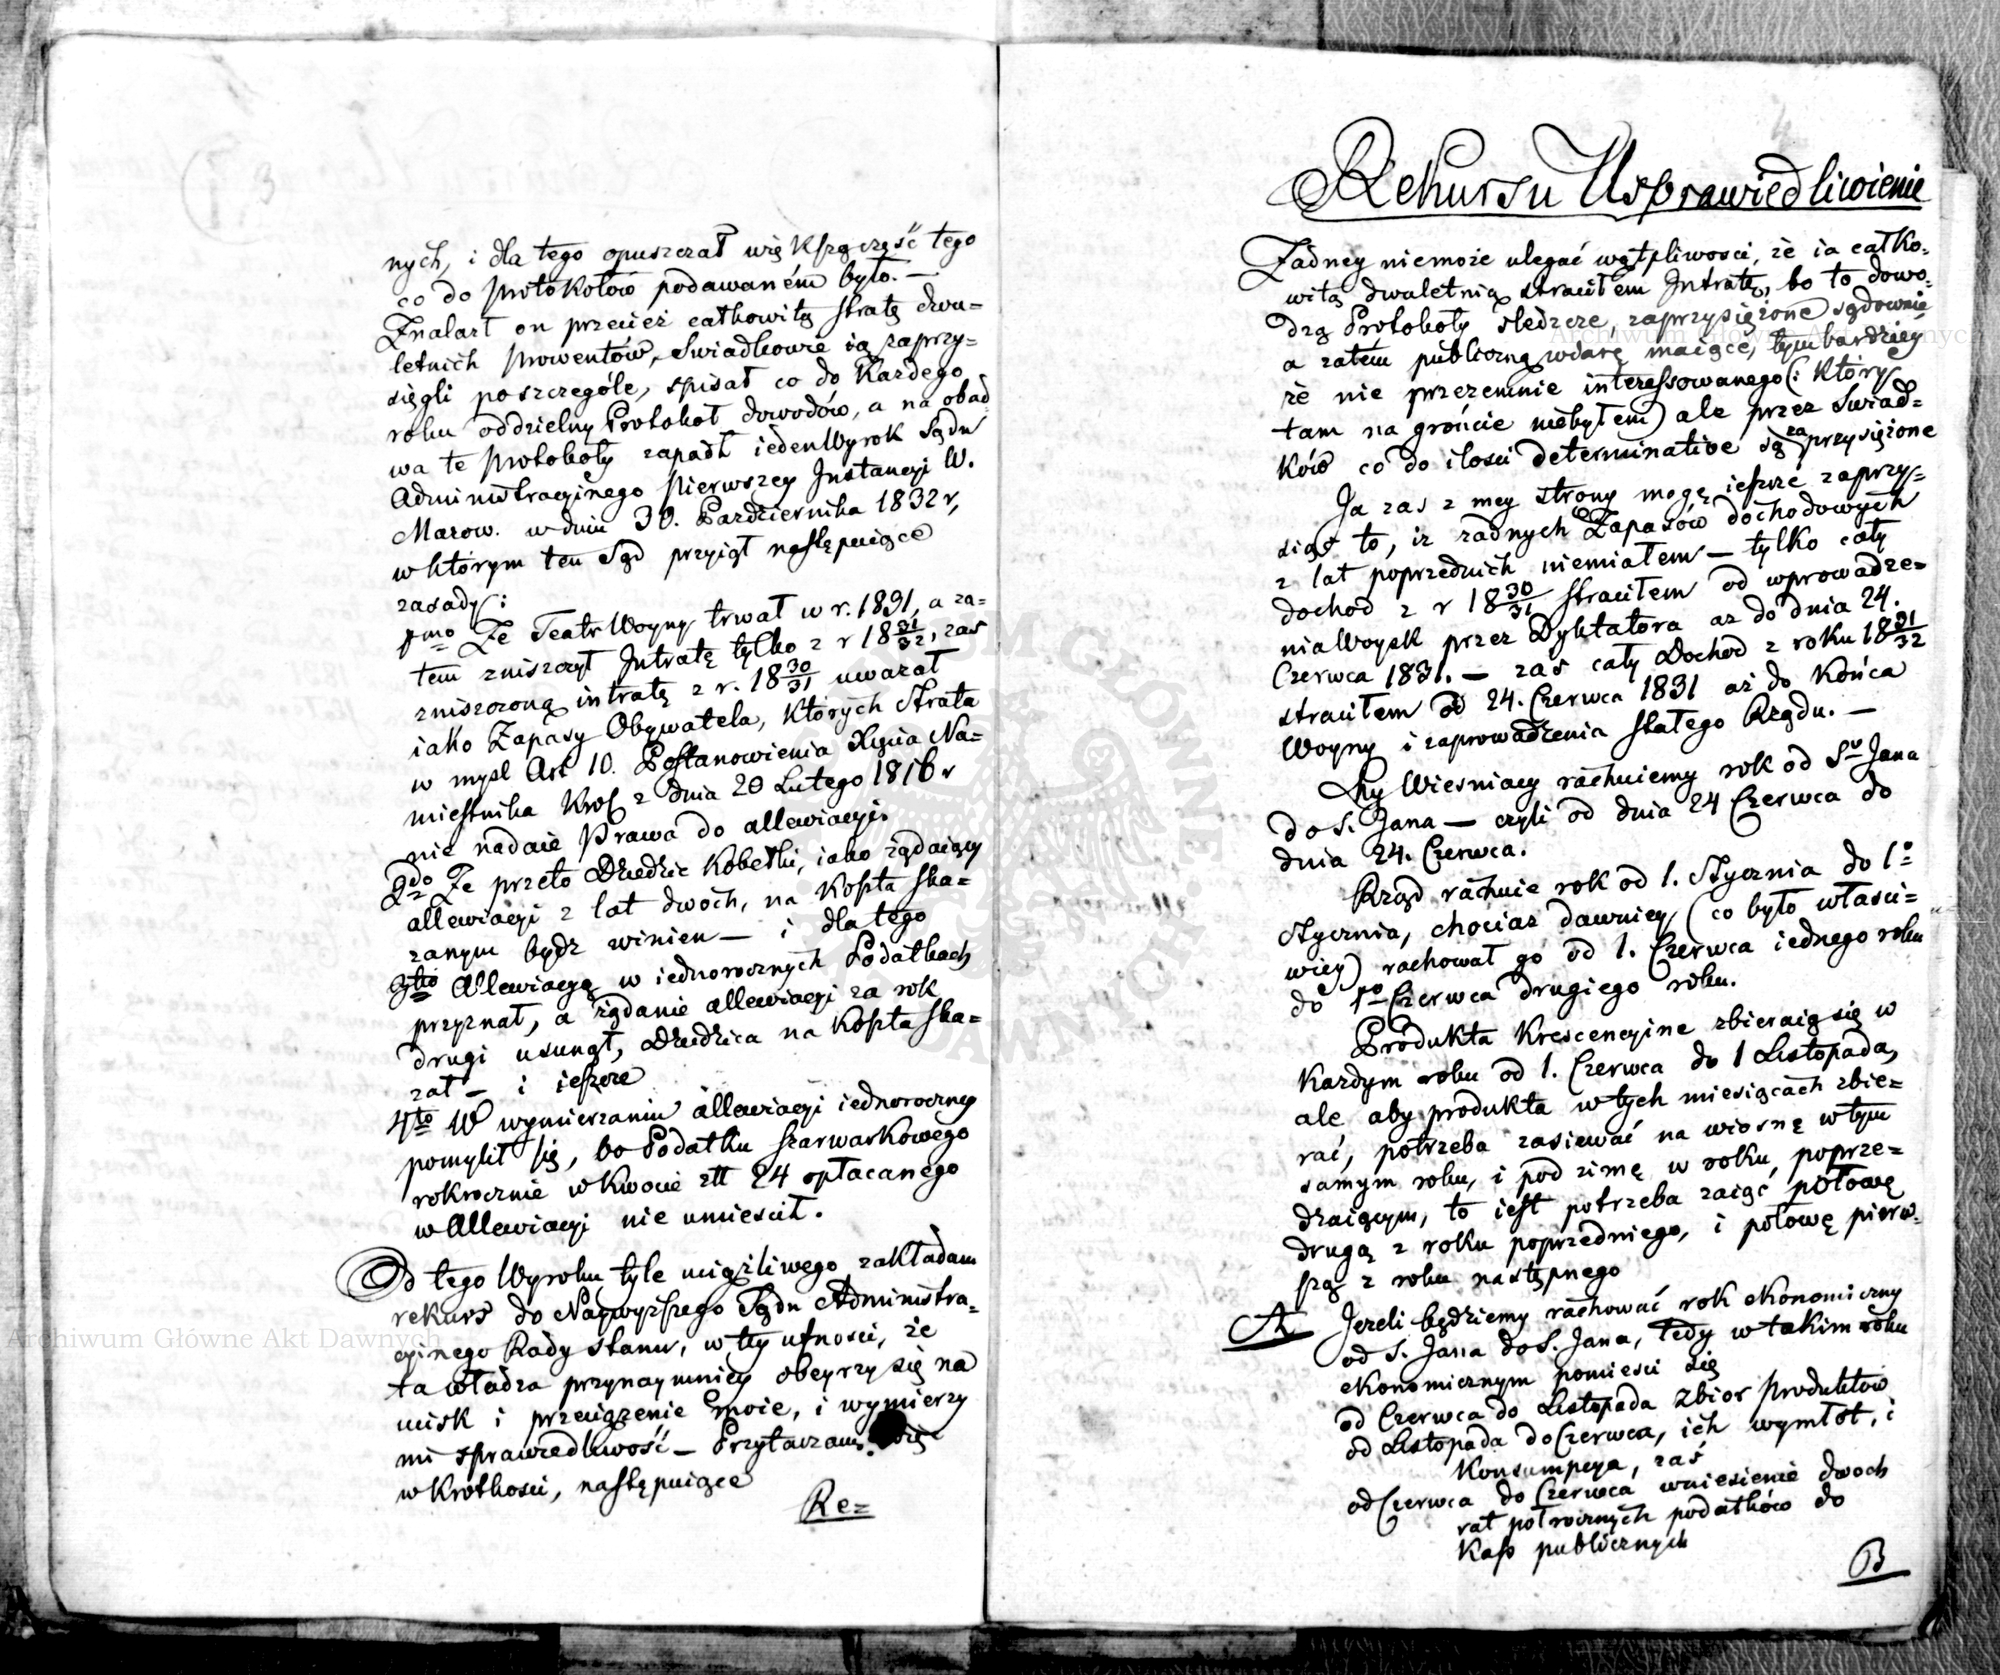 3
nych, i dla tego opuszczał większą część tego
co do Protokołów podawaném było. —
Znalazł on przecież całkowitą stratę dwu=
letnich prowentów, Swiadkowie ią zaprzy=
sięgli poszczególe, spisał co do każdego
roku oddzielny Protokoł dowodów, a na obad
wa te Protokoły zapadł ieden Wyrok Sądu
Administracyinego Pierwszey Instancyi W.
Mazow. w dniu 30. Pazdziernika 1832 r,
w którym ten Sąd przyiął następuiące
zasady:
1mo Że Teatr Woyny trwał w r. 1831, a za=
tem zniszczył Intratę tylko z r 18 31/32, zaś
zniszczoną intratę z r. 18 30/31 uważał
iako Zapasy Obywatela, których strata
w mysl Art 10. Postanowienia Xięcia Na=
miestnika Król z dnia 20 Lutego 1816 r
nie nadaie Prawa do allewiacyi.
2do Że przeto Dziedzic Kobełki, iako żądaiący
allewiacyi z lat dwóch, na koszta ska=
zanym bydź winien — i dla tego
3tio Allewiacyą w iednorocznych Podatkach
przyznał, a żądanie allewiacyi za rok
drugi usunął, Dziedzica na koszta ska=
zał — i ieszcze
4to W wymierzaniu allewiacyi iednoroczney
pomylił się, bo Podatku szarwarkowego
rokrocznie w kwocie złł 24 opłacanego
w Allewiacyi nie umieścił.
Od tego Wyroku tyle uciążliwego zakładam
rekurs do Naywyższego Sądu Administra=
cyinego Rady Stanu, w tey ufnosci, że
ta władza przynaymniey obeyrzy się na
ucisk i przeciążenie moie, i wymierzy
mi sprawiedliwość — Przytaczam więc
w krotkosci, następuiące
Re=
4
Rekursu Usprawiedliwienie
Żadney niemoże ulegać wątpliwosci, że ia całko=
witą dwuletnią straciłem Intratę, bo to dowo=
dzą Protokoły sledzcze, zaprzysiężone sądownie
a zatem publiczną wiarę maiące, tym bardziey
że nie przezemnie interessowanego (: który
tam na gróncie niebyłem) ale przez Swiad=
ków co do ilosci determinative są zaprzysiężone
Ja zas z mey strony mogę ieszcze zaprzy=
siąś to, iż żadnych Zapasów dochodowych
z lat poprzednich niemiałem — tylko cały
dochod z r 18 30/31 straciłem od wprowadze=
nia Woysk przez Dyktatora aż do dnia 24.
Czerwca 1831. — zaś cały Dochod z roku 18 31/32
straciłem od 24. Czerwca 1831 aż do końca
Woyny i zaprowadzenia stałego Rządu. —
My Wiesniacy rachuiemy rok od So Jana
do S. Jana — czyli od dnia 24 Czerwca do
dnia 24. Czerwca.
Rząd rachuie rok od 1. Stycznia do 1o
Stycznia, chociaż dawniey (co było własci=
wiey) rachował go od 1. Czerwca iednego roku
do 1o Czerwca drugiego roku.
Produkta krescencyine zbieraią się w
każdym roku od 1. Czerwca do 1 Listopada,
ale aby produkta w tych miesiącach zbie=
rać, potrzeba zasiewać na wiosnę w tym
samym roku, i pod zimę w roku poprze=
dzaiącym, to iest potrzeba zaiąć połowę
drugą z roku poprzedniego, i połowę pierw=
szą z roku następnego
A Jeżeli będziemy rachować rok ekonomiczny
od S. Jana do S. Jana, tedy w takim roku
ekonomicznym pomiesci się
od Czerwca do Listopada zbior produktów
od Listopada do Czerwca, ich wymłot, i
konsumpcya, zaś
od Czerwca do Czerwca wniesienie dwoch
rat połrocznych podatków do
Kass publicznych
B